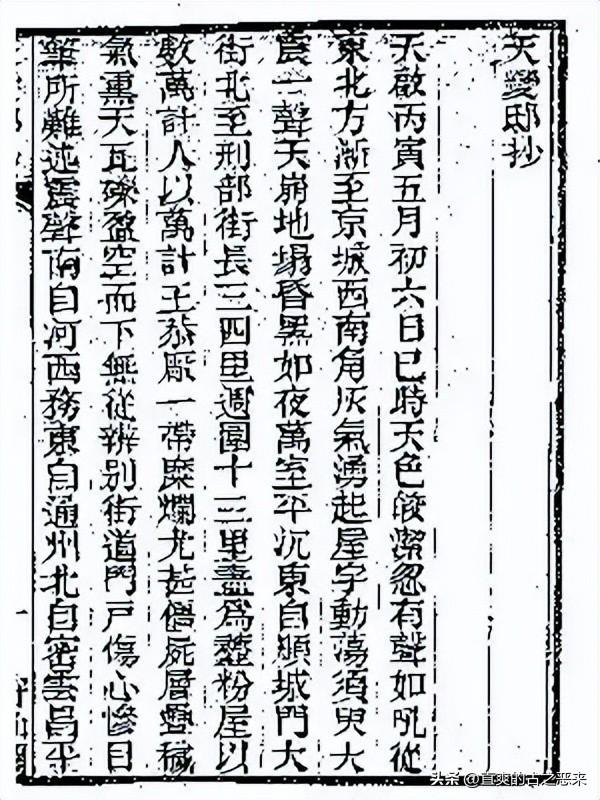 天變邸抄
天啟丙寅五月初六日巳時天色皎潔忽有聲如吼從
東北方漸至京城西南角灰氣湧起屋宇動蕩須臾大
震一聲天崩地塌昏黑如夜萬室平沉東自順城門大
街北至刑部街長三四里週圍十三里盡爲虀粉屋以
數萬計人以萬計王恭厰一帶糜爛尤甚僵屍層疊穢
氣熏天瓦礫盈空而下無從辨別街道門戸傷心慘目
筆所難述震聲南自河西務東自通州北自密雲昌平
头条 @直爽的古之恶来